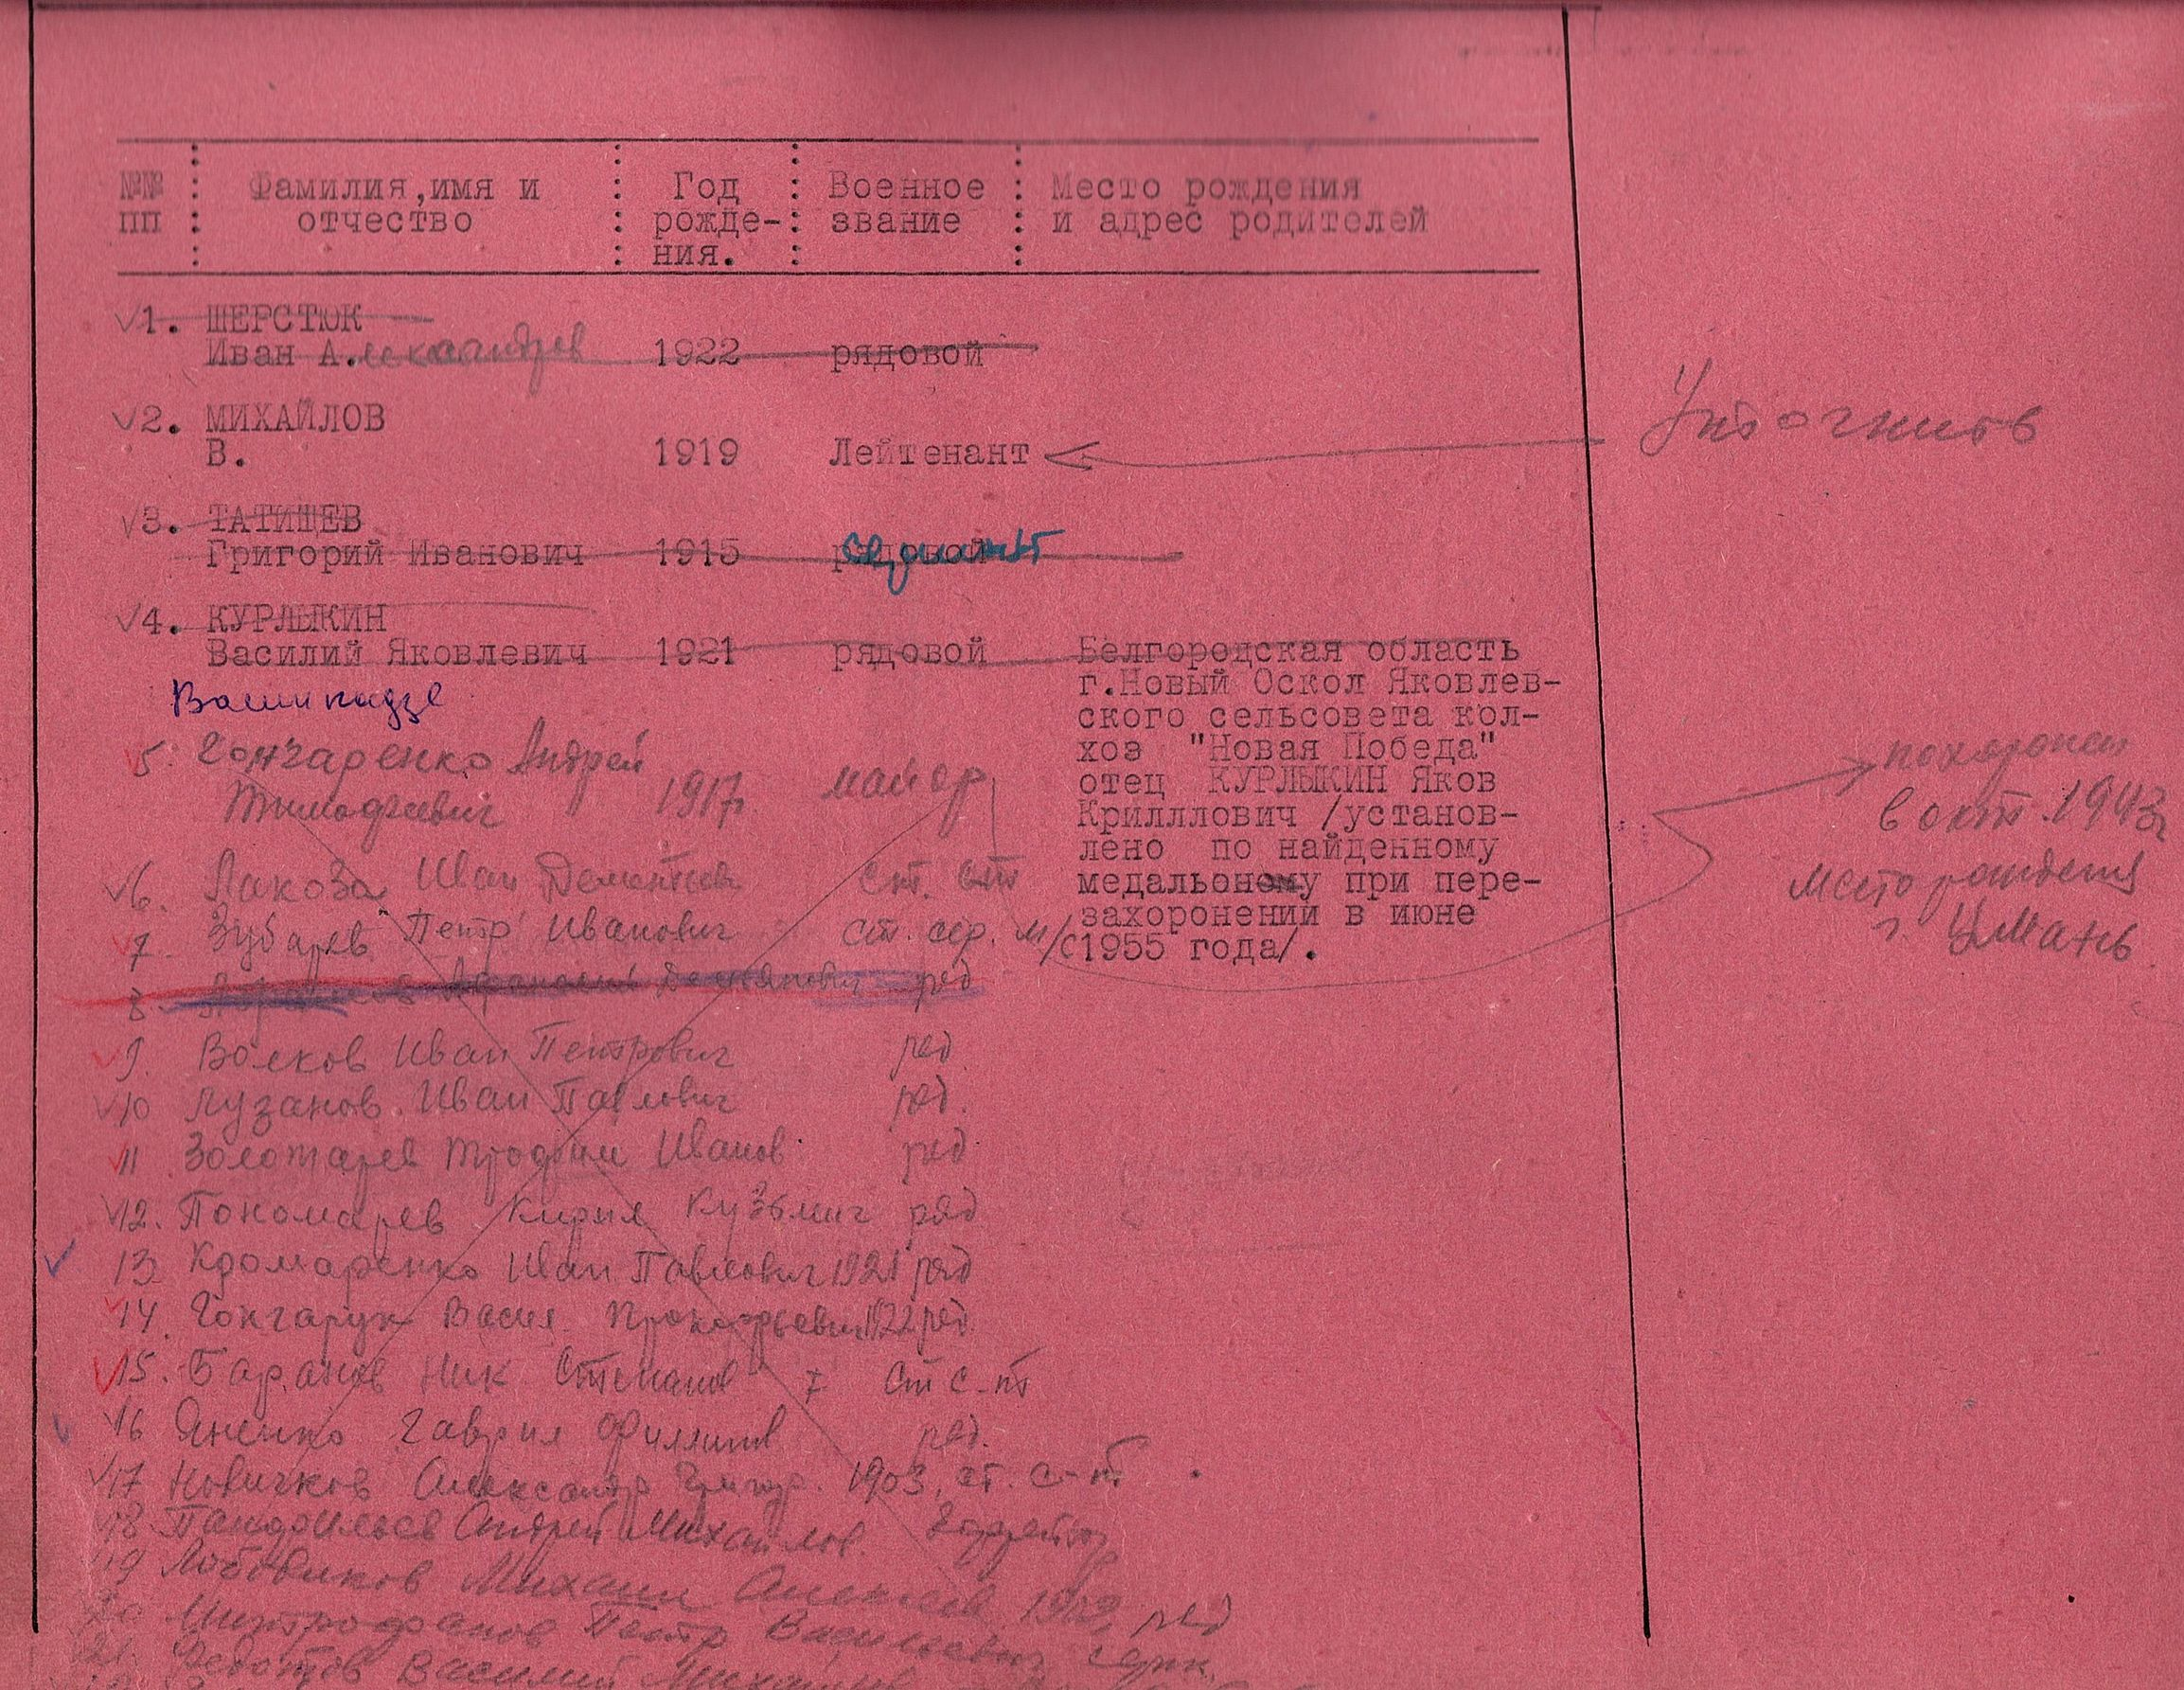 №№ Фамилия,имя и Год Военное Место рождения
ПП отчество рожде- звание и адрес родителей
ния.
1. ШЕРСТЮК
Иван А.лександров 1922 рядовой
2. МИХАЙЛОВ
В. 1919 Лейтенант
Уточнить
3. ТАТИЩЕВ
Григорий Иванович 1915 рядовой сержант
4. КУРЛЫКИН
Василий Яковлевич 1921 рядовой Белгородская область
г.Новый Оскол Яковлев-
ского сельсовета кол-
хоз "Новая Победа"
отец КУРЛЫКИН Яков
Крилллович /установ-
лено по найденному
медальоному при пере-
захоронений в июне
1955 года/.
Вашикадзе
5. Гончаренко Андрей
Тимофеевич 1917г. майор
похоронен
в окт. 1943г
место рождения
г. Умань
6. Лакоза Иван Дементьев ст. с-т
7. Зубарев Петр Иванович ст. сер. м/с
8. ряд
9. Волков Иван Петрович ряд.
10 Лузанов Иван Павлович ряд.
11 Золотарев Трофим Иванов ряд
12. Пономарев Кирил Кузьмич ряд
13 Иван Павлович 1921 ряд
14. Гончарук Васил Прокофьевич 1922 ряд.
15. Баранов Ник Степанов ст с-нт
16 Яненко Гаврил Филиппов ряд.
17 Новичков Александр Григор. 1903, ст. с-нт
18 Андрей Михайлов. Ефрейтор
19 Лобовиков Михаил Алексеев ряд
20 Митрофанов Петр Васильевич серж.
21. Федотов Василий Михайлов